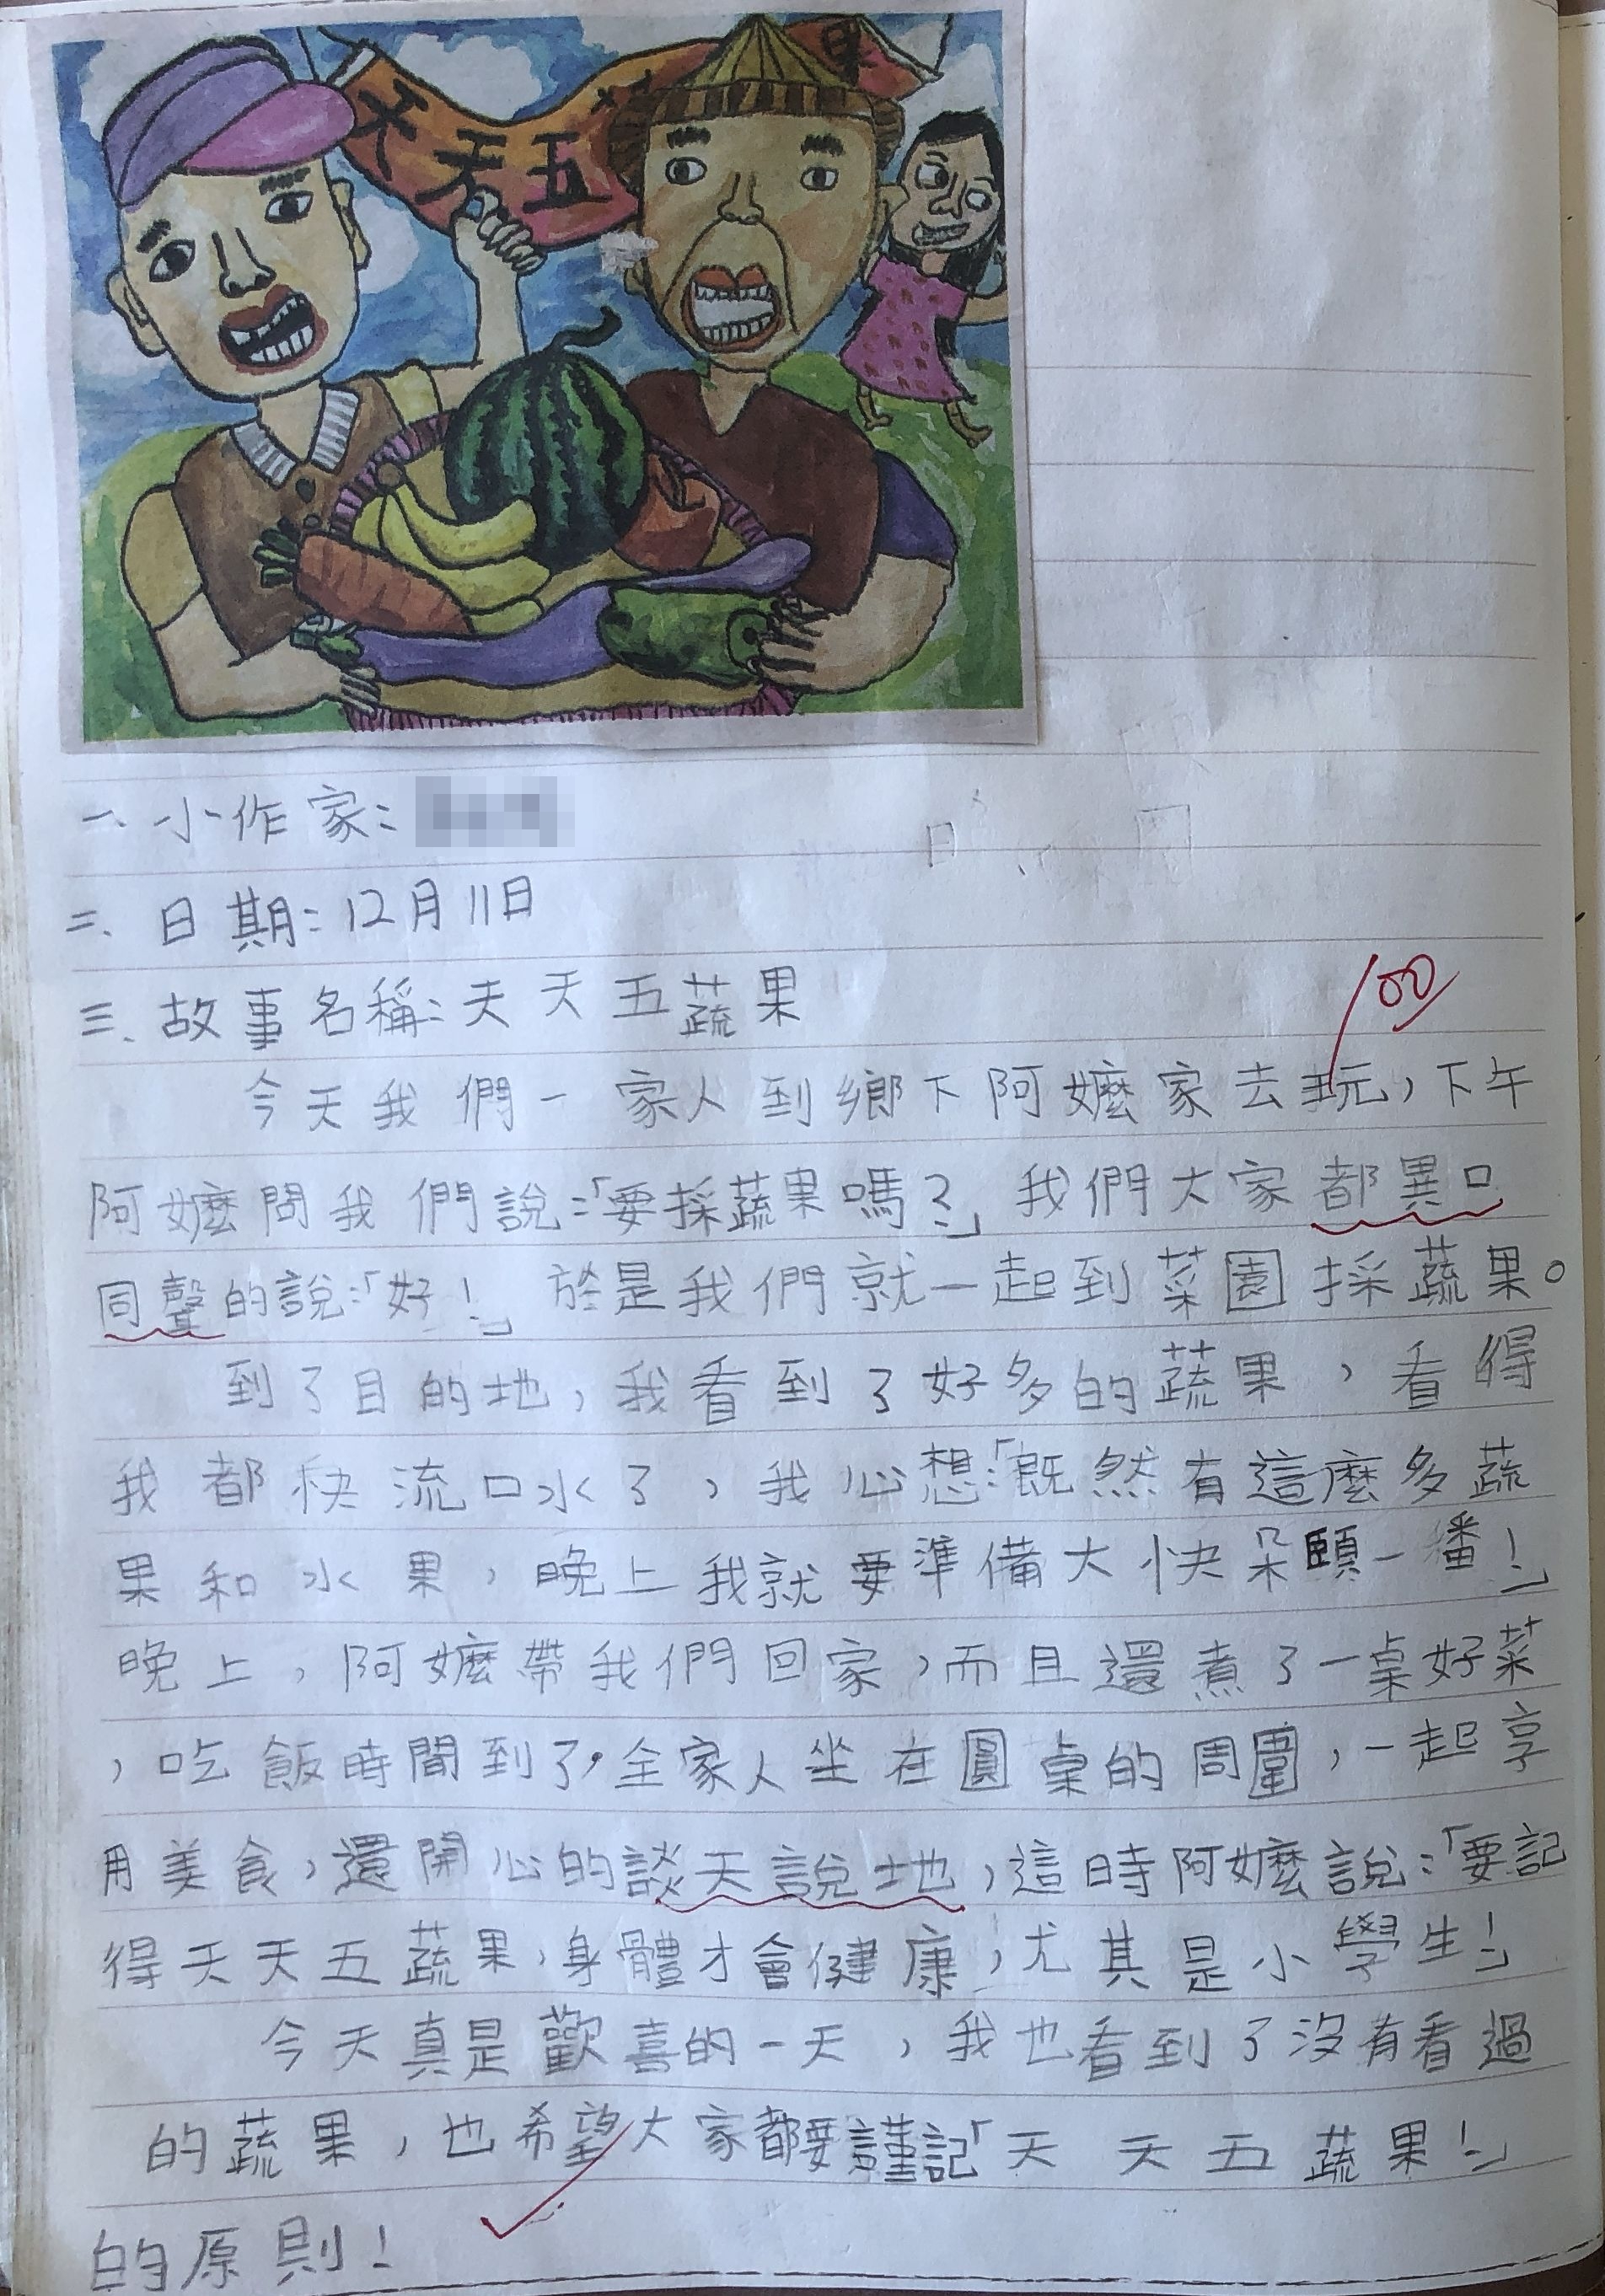 天天五蔬果
一、小作家：
二、日期：12月11日
三、故事名稱：天天五蔬果
100
今天我們一家人到鄉下阿嬤家去玩，下午
阿嬤問我們說：「要採蔬果嗎？」我們大家都異口
同聲的說：「好！」於是我們就一起到菜園採蔬果。
到了目的地，我看到了好多的蔬果，看得
我都快流口水了，我心想：「既然有這麼多蔬
果和水果，晚上我就要準備大快朵頤一番！」
晚上，阿嬤帶我們回家，而且還煮了一桌好菜
，吃飯時間到了，全家人坐在圓桌的周圍，一起享
用美食，還開心的談天說地，這時阿嬤說：「要記
得天天五蔬果，身體才會健康，尤其是小學生！」
今天真是歡喜的一天，我也看到了沒有看過
的蔬果，也希望大家都要謹記「天天五蔬果！」
的原則！